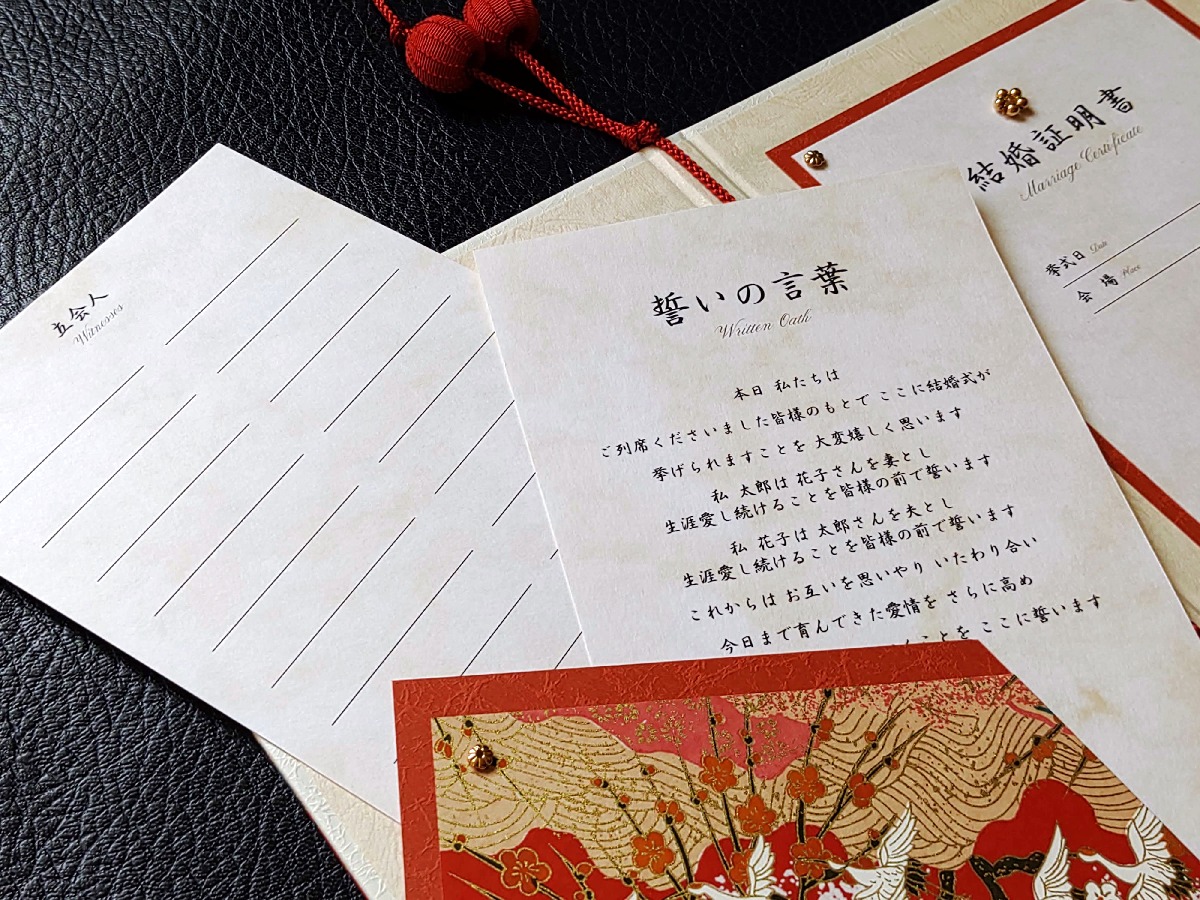 立会人
Witnesses
誓いの言葉
Written Oath
本日 私たちは
ご列席くださいました皆様のもとで ここに結婚式が
挙げられますことを 大変嬉しく思います
私 太郎は 花子さんを妻とし
生涯愛し続けることを皆様の前で誓います
私 花子は 太郎さんを夫とし
生涯愛し続けることを皆様の前で誓います
これからは お互いを思いやり いたわり合い
今日まで育んできた愛情を さらに高め
ことを ここに誓います
結婚証明書
Marriage Certificate
挙式日 Date
会場 Place